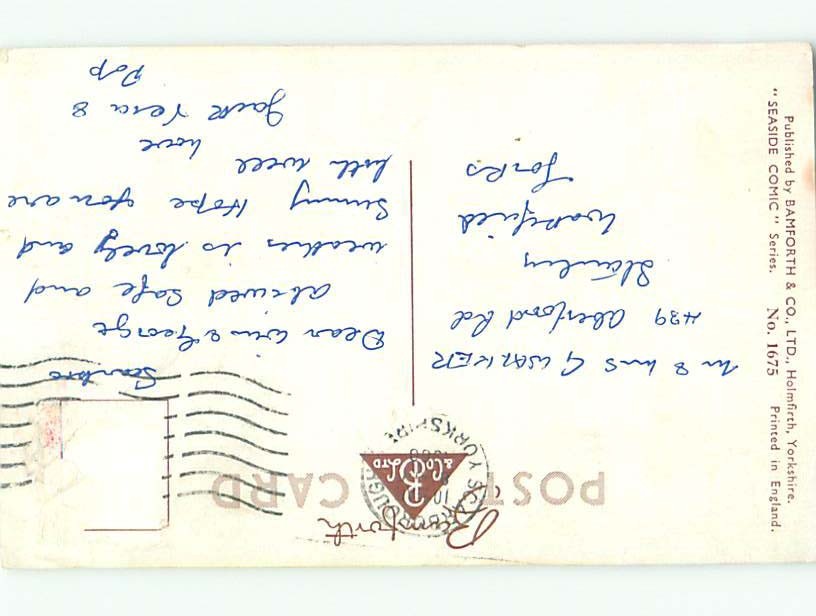 Bamforth
& Co Ltd
POST CARD
SCARBOROUGH
YORKSHIRE
Scarbro
Dear Win & George
arived safe and
weather is lovely and
Sunny Hope you are
both well
love
Jack Vera &
Pop
Mr & Mrs G WALKER
439 Aberford Rd
Stanley
Wakefield
Yorks
Published by BAMFORTH & CO., LTD., Holmfirth, Yorkshire.
"SEASIDE COMIC" Series. No. 1675 Printed in England.